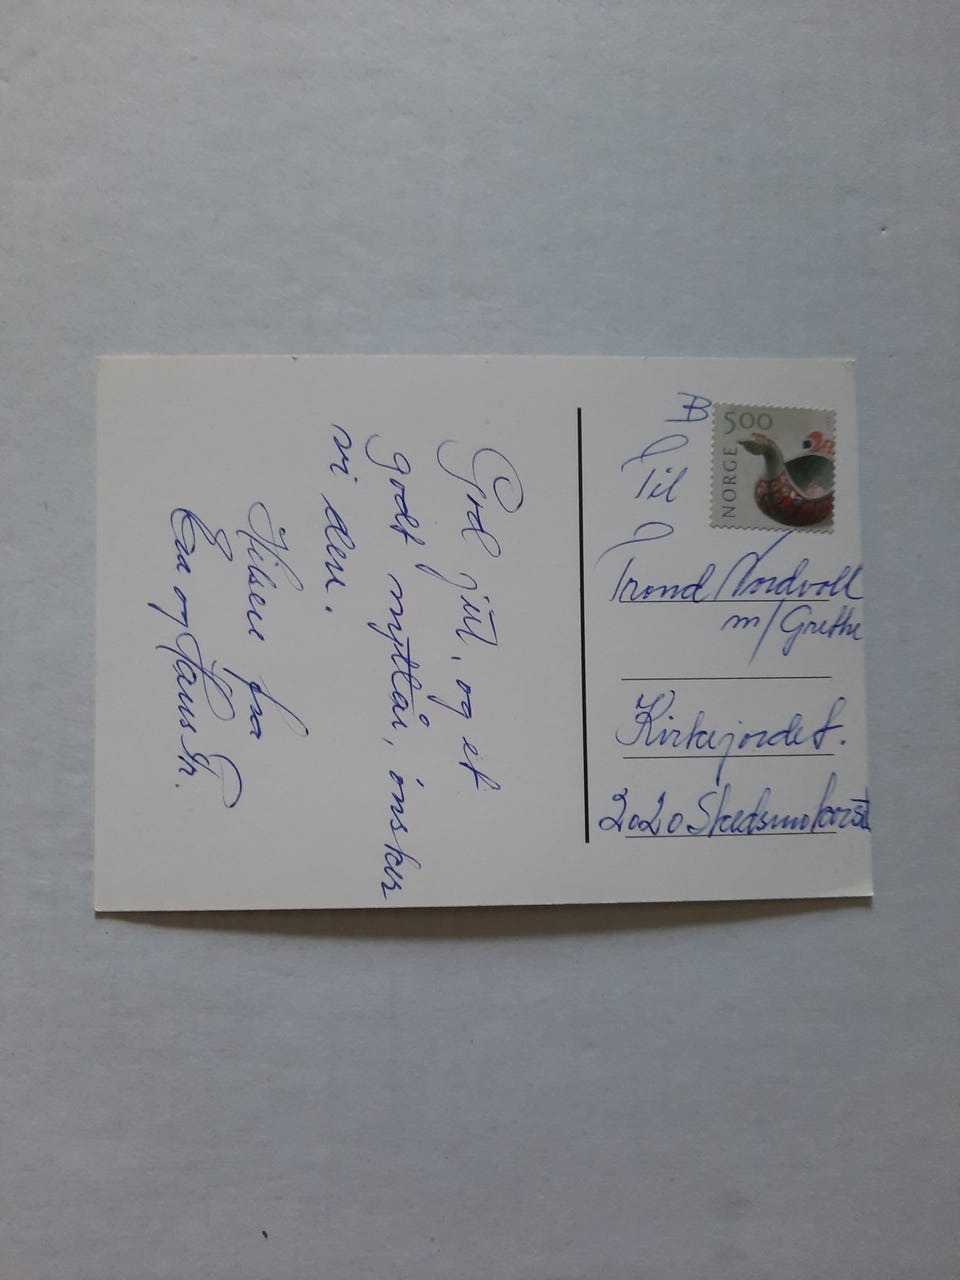 God jul, og et
godt nyttår, ønsker
vi dere.
Hilsen fra
Eva og Hans Kr.
B
5.00
NORGE
Til
Trond Nordvoll
m/Grethe
Kirkejordet.
2020 Skedsmokorset